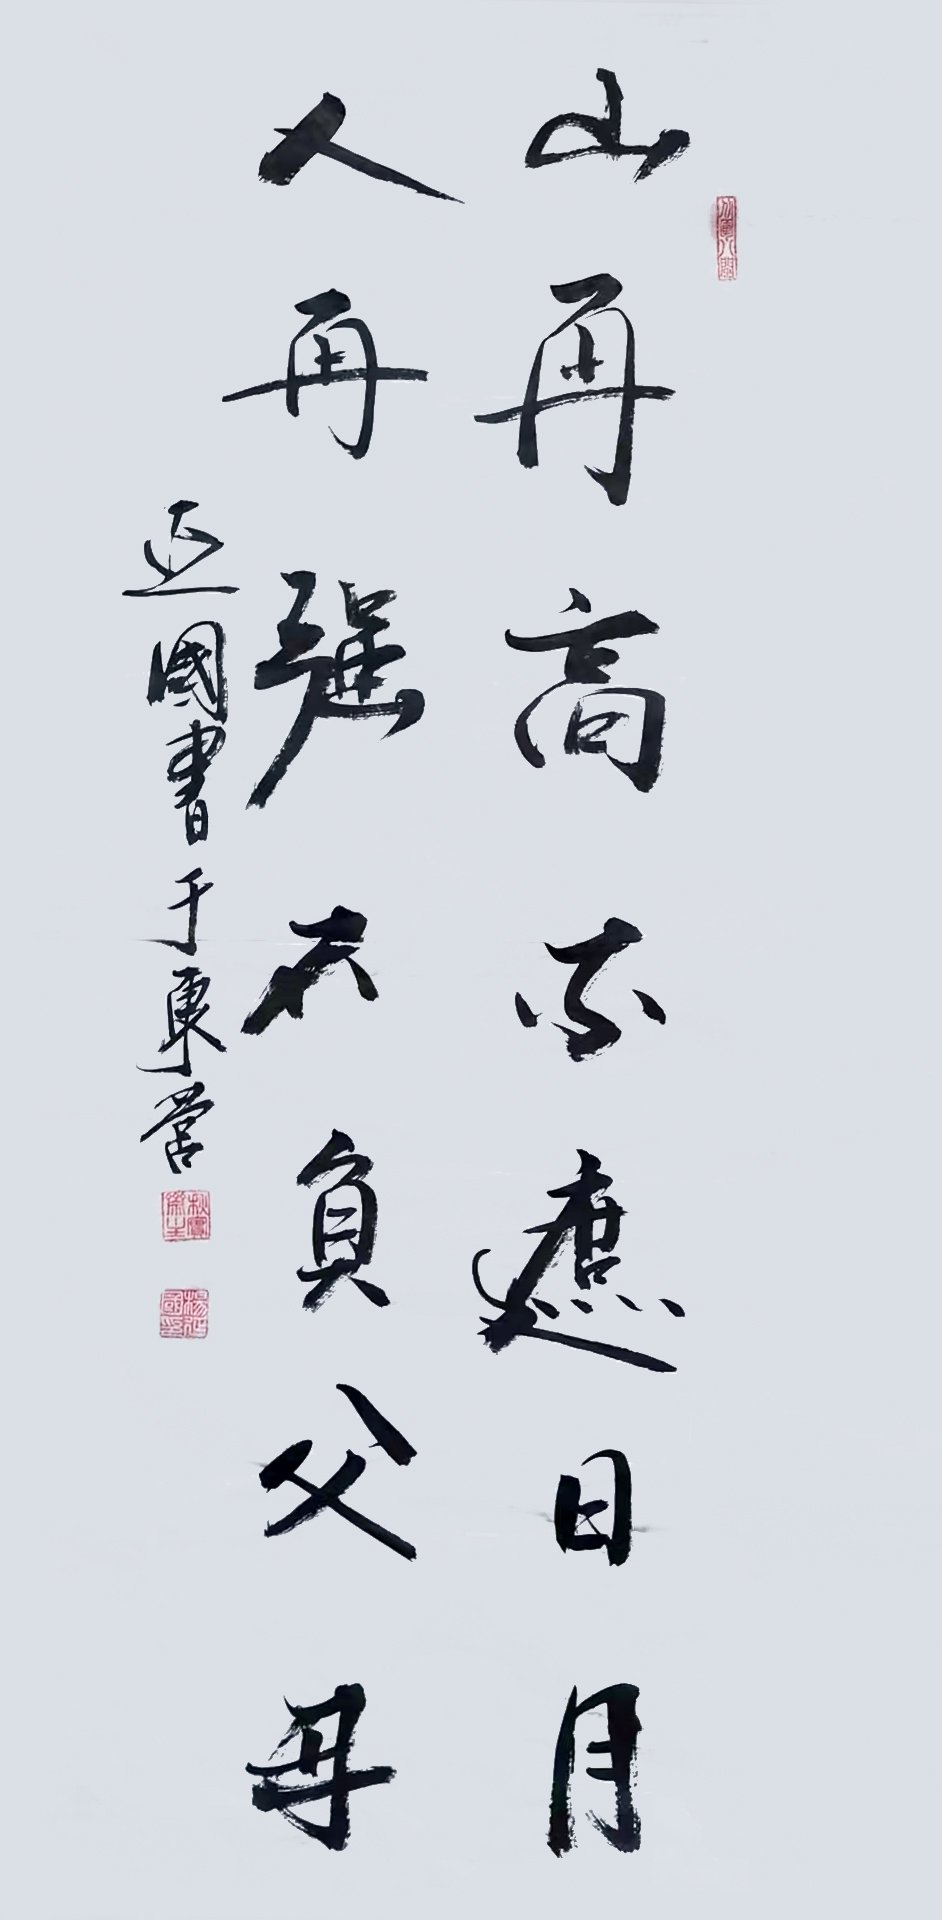 山再高不遮日月
人再强不負父母
延國書于東營